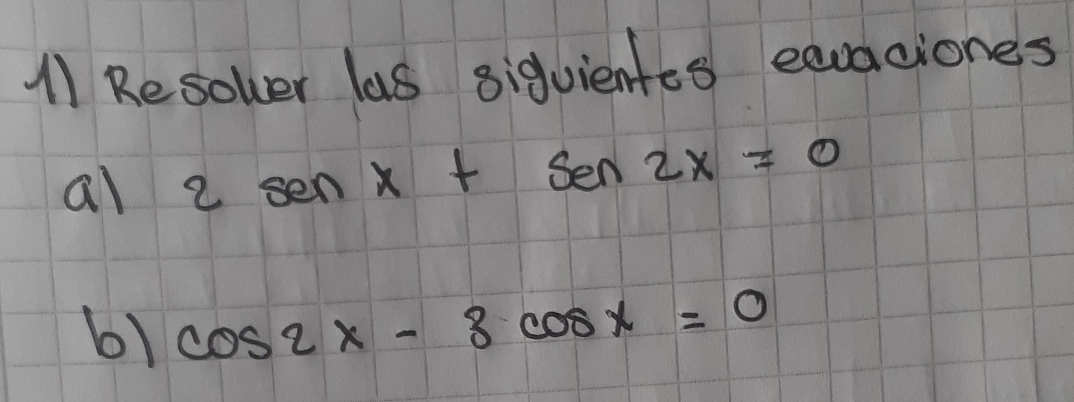 1) Resolver las siguientes ecuaciones
a) 2 sen x + Sen 2x = 0
b) cos 2x - 3 cos x = 0